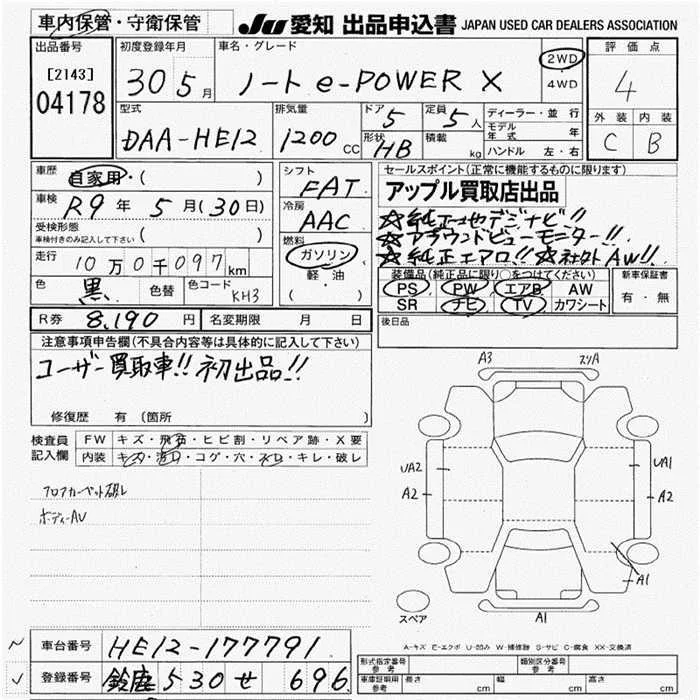 車内保管・守衛保管
JU 愛知 出品申込書 JAPAN USED CAR DEALERS ASSOCIATION
出品番号
[2143]
04178
初度登録年月
30 5月
車名・グレード
ノート e-POWER X
2WD
・
4WD
評価点
4
外装 内装
C B
型式
DAA-HE12
排気量
1200 CC
ドア 5
形状 HB
定員 5人
積載 kg
ディーラー・並行
モデル年式 年
ハンドル 左・右
車歴
自家用・( )
車検
R9年 5月(30日)
受検形態
車検付きのみ記入して下さい ( )
走行
10万0千097km
色
黒
色替
色コード
KH3
シフト
FAT
冷房
AAC
燃料
ガソリン
軽・油
( )
セールスポイント(正常に機能するものに限ります)
アップル買取店出品
☆純正ナビ!!
☆アラウンドビューモニター!!
☆純正エアロ!! ☆社外AW!!
装備品(純正品に限り○をつけてください)
PS PW エアB AW
SR ナビ TV カワシート
新車保証書
有・無
R券 8,190円
名変期限 月 日
後日品
注意事項申告欄(不具合内容等は具体的に記入して下さい)
ユーザー買取車!! 初出品!!
修復歴 有 (箇所 )
検査員
記入欄
FW キズ・飛石・ヒビ割・リペア跡・X要
内装 キズ・汚レ・コゲ・穴・スレ・キレ・破レ
フロアカーペット破レ
ボディーAU
A3 スリA
UA2 UA1
A2 A2
A1
A1
スペア
A-キズ E-エクボ U-凹み W-補修跡 S-サビ C-腐食 XX-交換済
車台番号 HE12-177791
登録番号 鈴鹿 530 せ 696
形式指定番号
参考
類別区分番号
参考
車庫証明用
参考
長さ cm 幅 cm 高さ cm